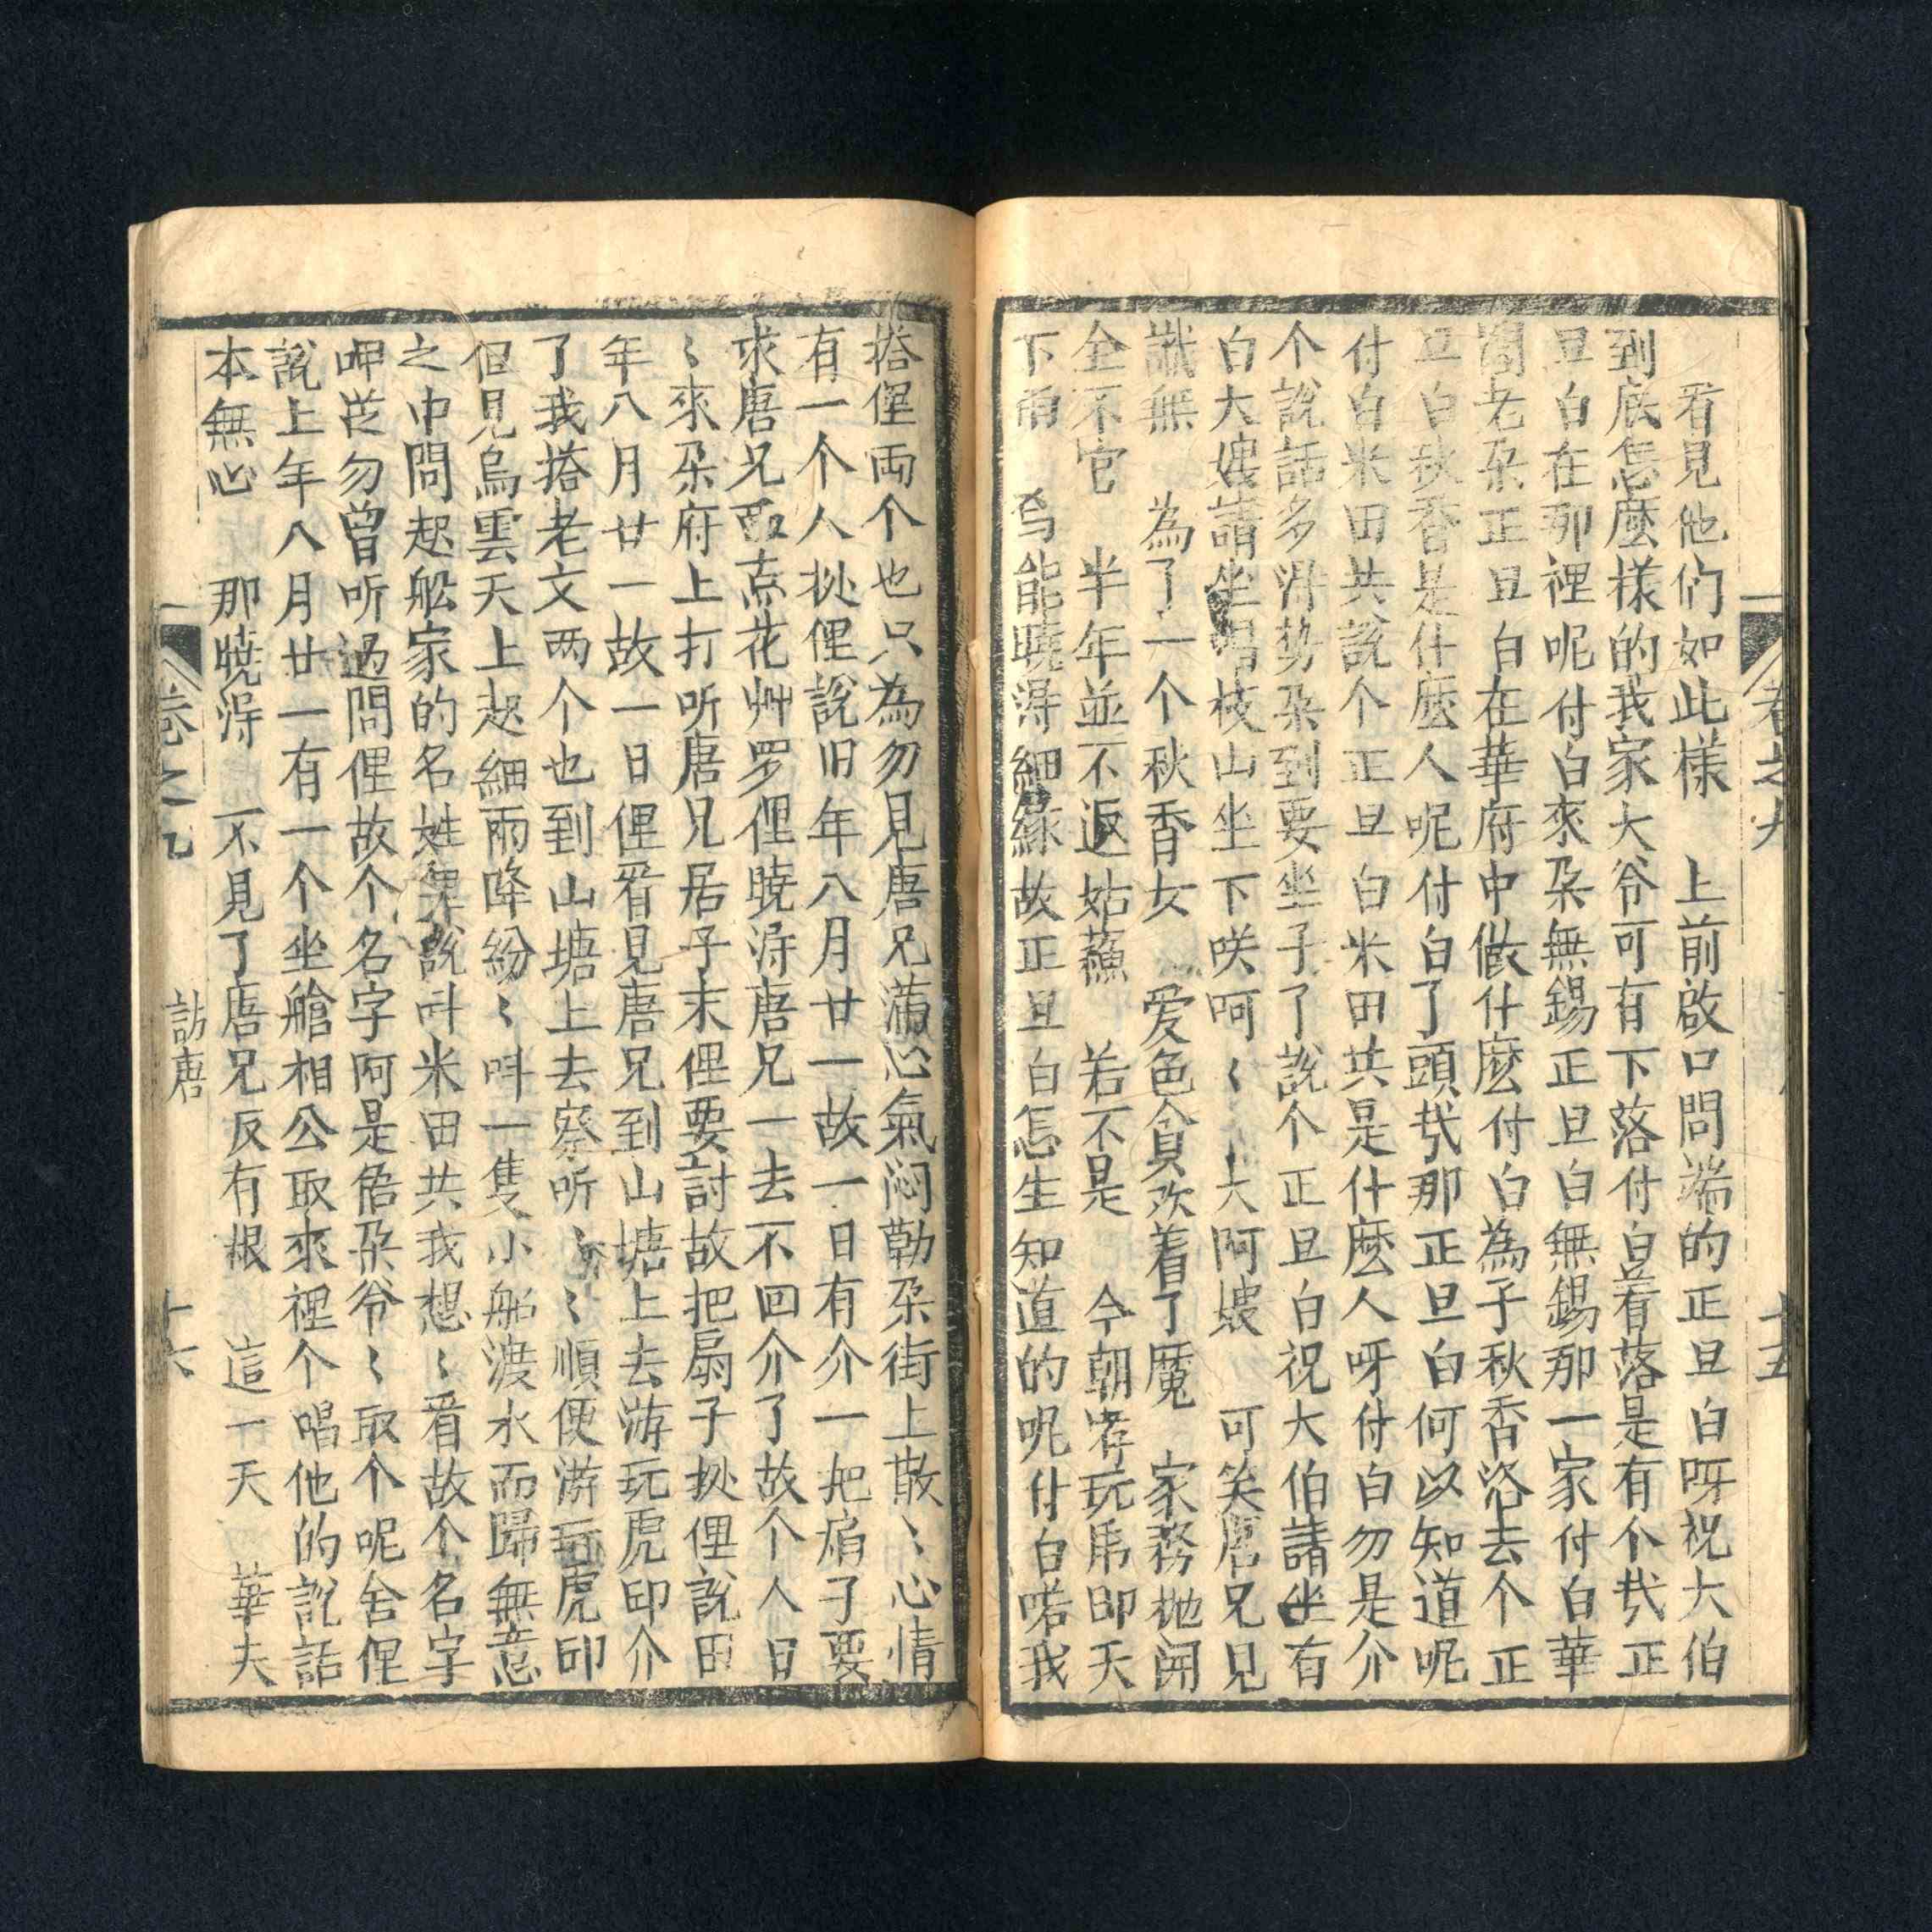 卷之九
十五
看見他们如此樣　上前啟口問端的正旦白呀祝大伯
到底怎麼樣的我家大爷可有下落付白着落是有个㢤正
旦白在那裡呢付白來朶無錫正旦白無錫那一家付白華
閣老朶正旦白在華府中做什麽付白為子秋香洛去个正
旦白秋香是什麽人呢付白了頭㢤那正旦白何以知道呢
付白米田共說个正旦白米田共是什麽人呀付白勿是介
个說話多滑势朶到要坐子了說个正旦白祝大伯請坐有
白大嫂請坐唱枝山坐下咲呵〻大阿嫂　可笑唐兄見
識無　為了一个秋香女　爱色貪欢着了魔　家務抛開
全不官　半年並不返姑蘓　若不是　今朝孛玩虎印天
下雨　為能曉淂細緣故正旦白怎生知道的呢付白喏我
搭俚両个也只為勿見唐兄滿心氣闷勒朶街上散〻心情
有一个人㧒俚說旧年八月廿一故一日有介一把扇子要
求唐兄画点花艸罗俚曉淂唐兄一去不回介了故个人日
〻來朶府上打听唐兄居子末俚要討故把扇子㧒俚說田
年八月廿一故一日俚看見唐兄到山塘上去游玩虎印介
了我搭老文两个也到山塘上去察听〻〻順便游玩虎印
但見烏雲天上起細雨降紛〻呌一隻小船渡水而歸無意
之中問起舩家的名姓俚說呌米田共我想〻看故个名字
呷從勿曾听過問俚故个名字阿是俉朶爷〻取个呢舍俚
說上年八月廿一有一个坐艙相公取來裡个唱他的說話
本無心　那曉淂　不見了唐兄反有根　這一天　華夫
卷之九
訪唐
十六